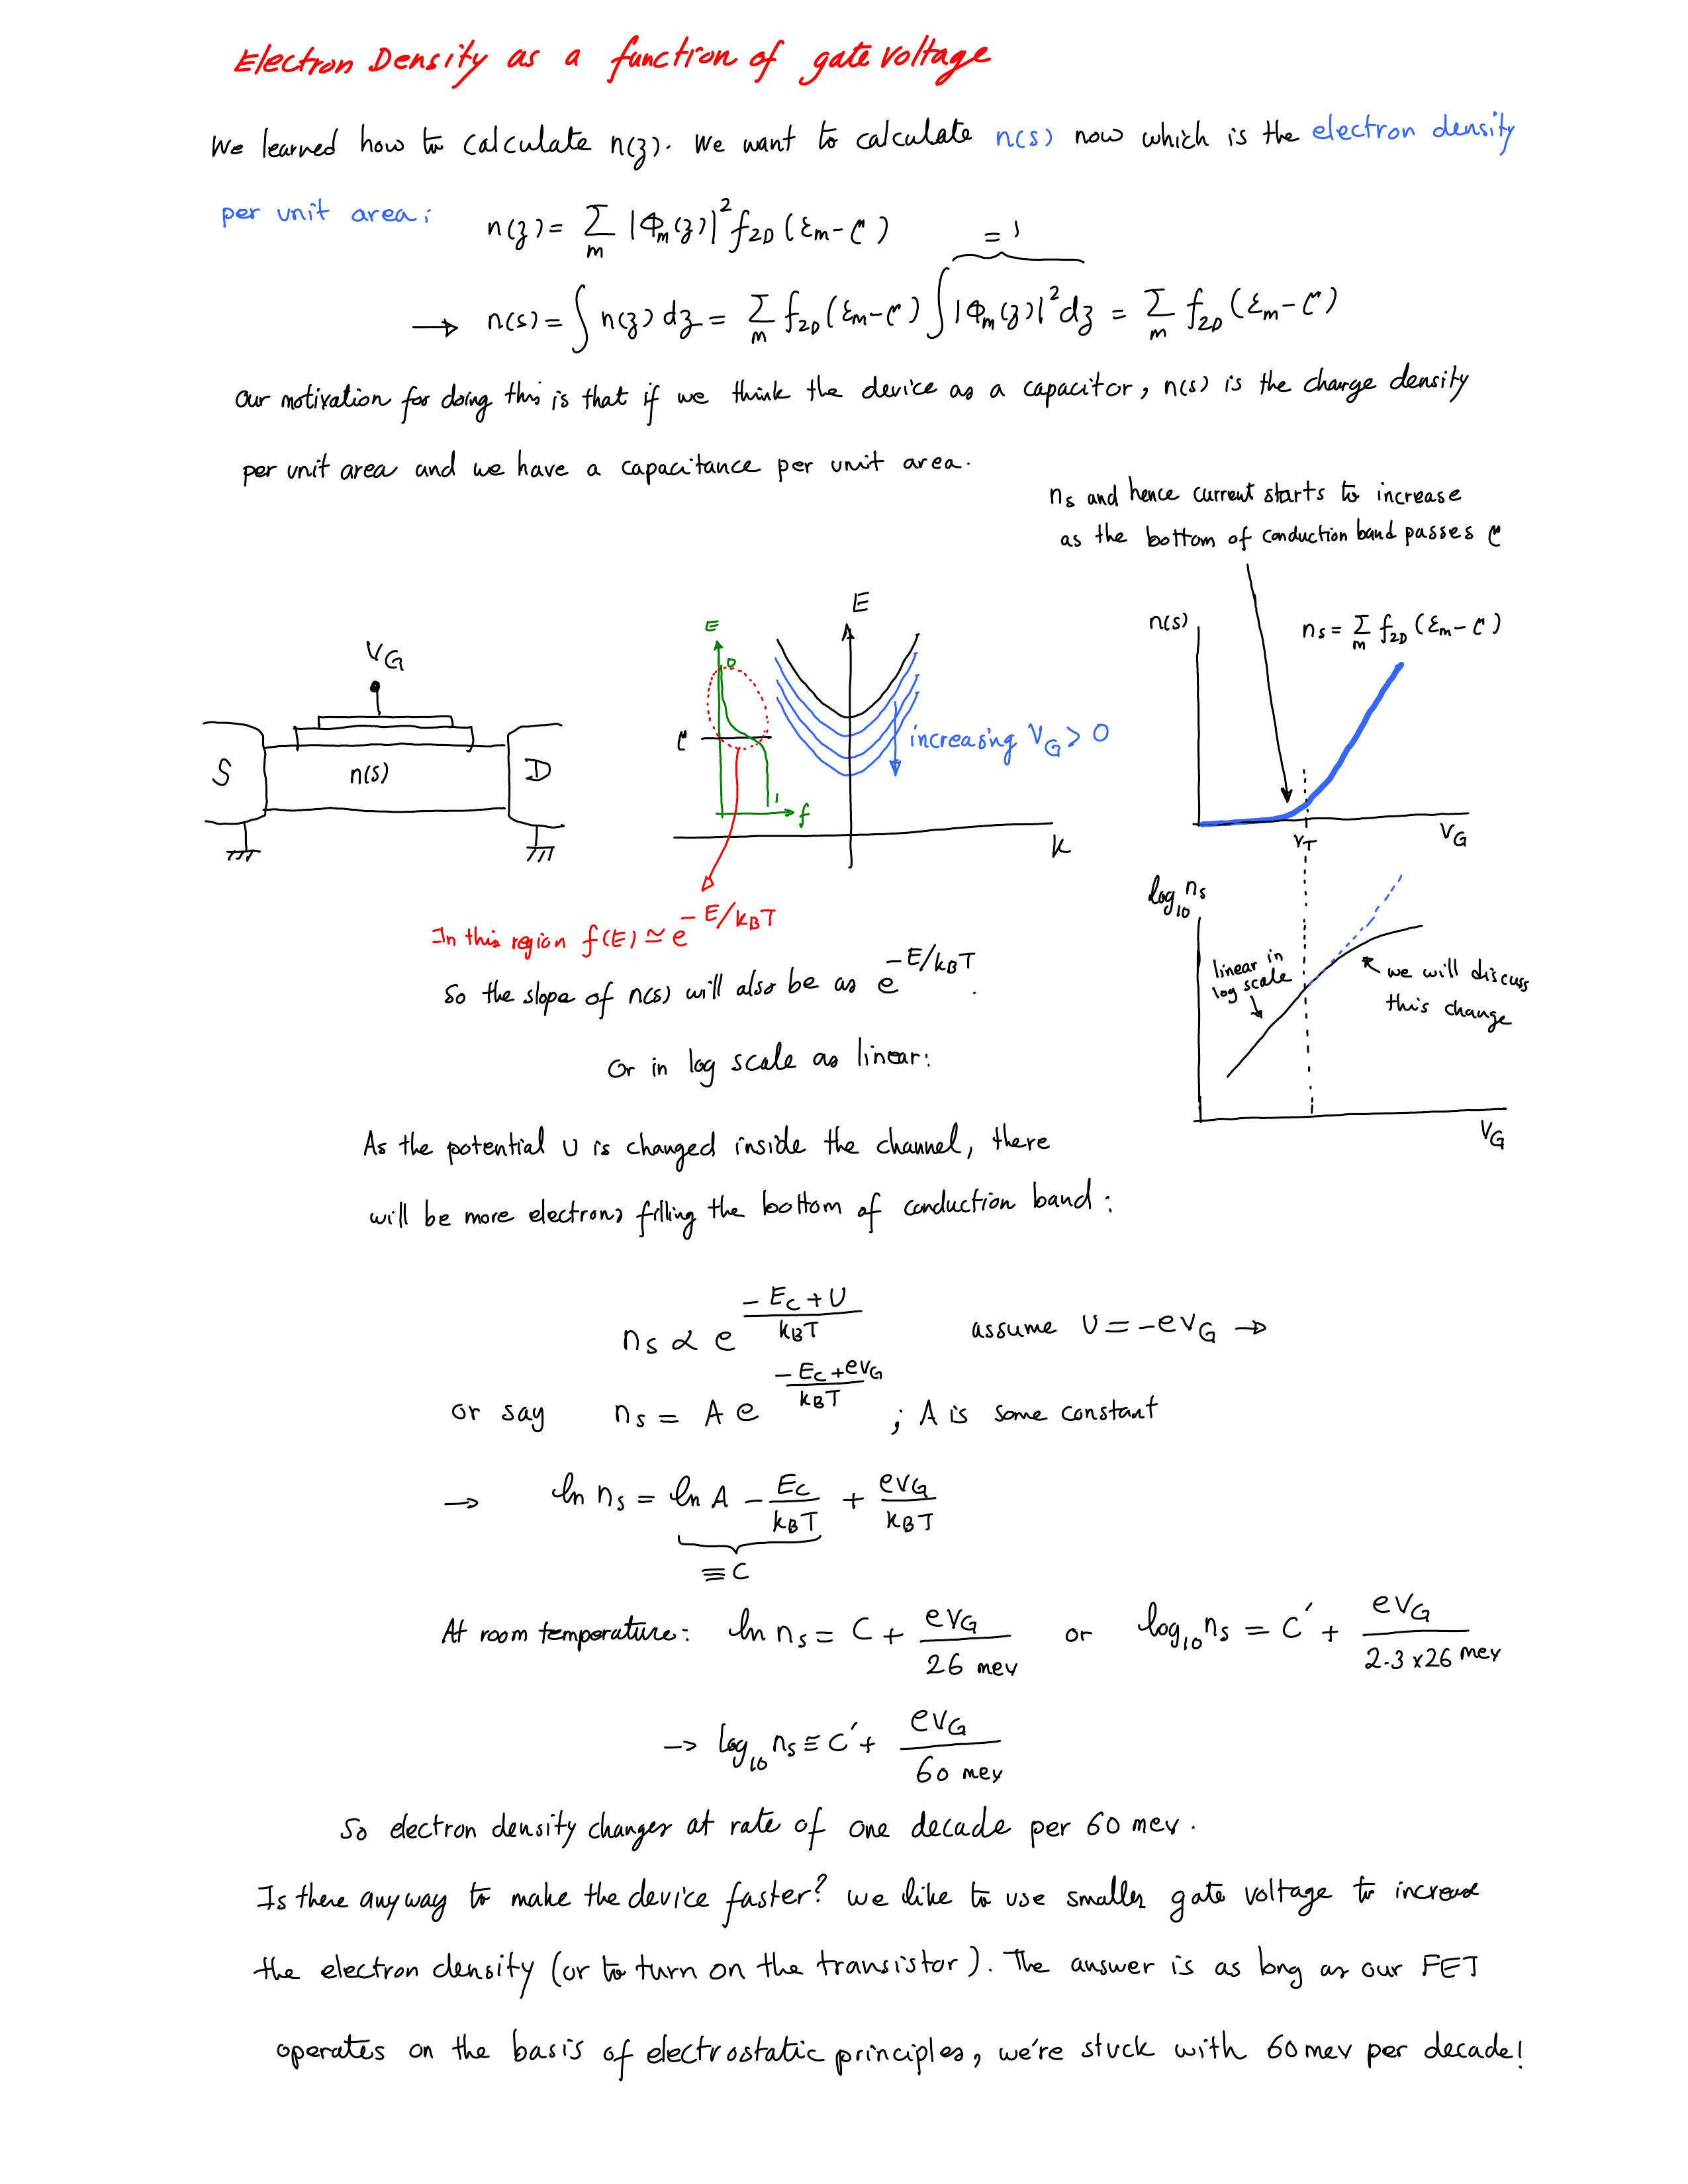 Electron Density as a function of gate voltage
We learned how to calculate n(z). We want to calculate n(s) now which is the electron density
per unit area:
n(z) = Σ_m |Φ_m(z)|² f_2D (ε_m - μ)
= 1
→ n(s) = ∫ n(z) dz = Σ_m f_2D (ε_m - μ) ∫ |Φ_m(z)|² dz = Σ_m f_2D (ε_m - μ)
Our motivation for doing this is that if we think the device as a capacitor, n(s) is the charge density
per unit area and we have a capacitance per unit area.
n_s and hence current starts to increase
as the bottom of conduction band passes μ
V_G
S
n(s)
D
E
0
μ
1
f
E
increasing V_G > 0
k
n(s)
n_s = Σ_m f_2D (ε_m - μ)
V_T
V_G
log_10 n_s
linear in
log scale
we will discuss
this change
V_G
In this region f(E) ≃ e^(-E/k_BT)
So the slope of n(s) will also be as e^(-E/k_BT).
Or in log scale as linear:
As the potential U is changed inside the channel, there
will be more electrons filling the bottom of conduction band:
n_s ∝ e^((-E_C + U)/k_BT) assume U = -eV_G →
or say n_s = A e^((-E_C + eV_G)/k_BT) ; A is some constant
→ ln n_s = ln A - E_C/k_BT + eV_G/k_BT
≡ C
At room temperature: ln n_s = C + eV_G/26 mev or log_10 n_s = C′ + eV_G/2.3 x 26 mev
→ log_10 n_s ≡ C′ + eV_G/60 mev
So electron density changes at rate of one decade per 60 mev.
Is there anyway to make the device faster? we like to use smaller gate voltage to increase
the electron density (or to turn on the transistor). The answer is as long as our FET
operates on the basis of electrostatic principles, we're stuck with 60 mev per decade!